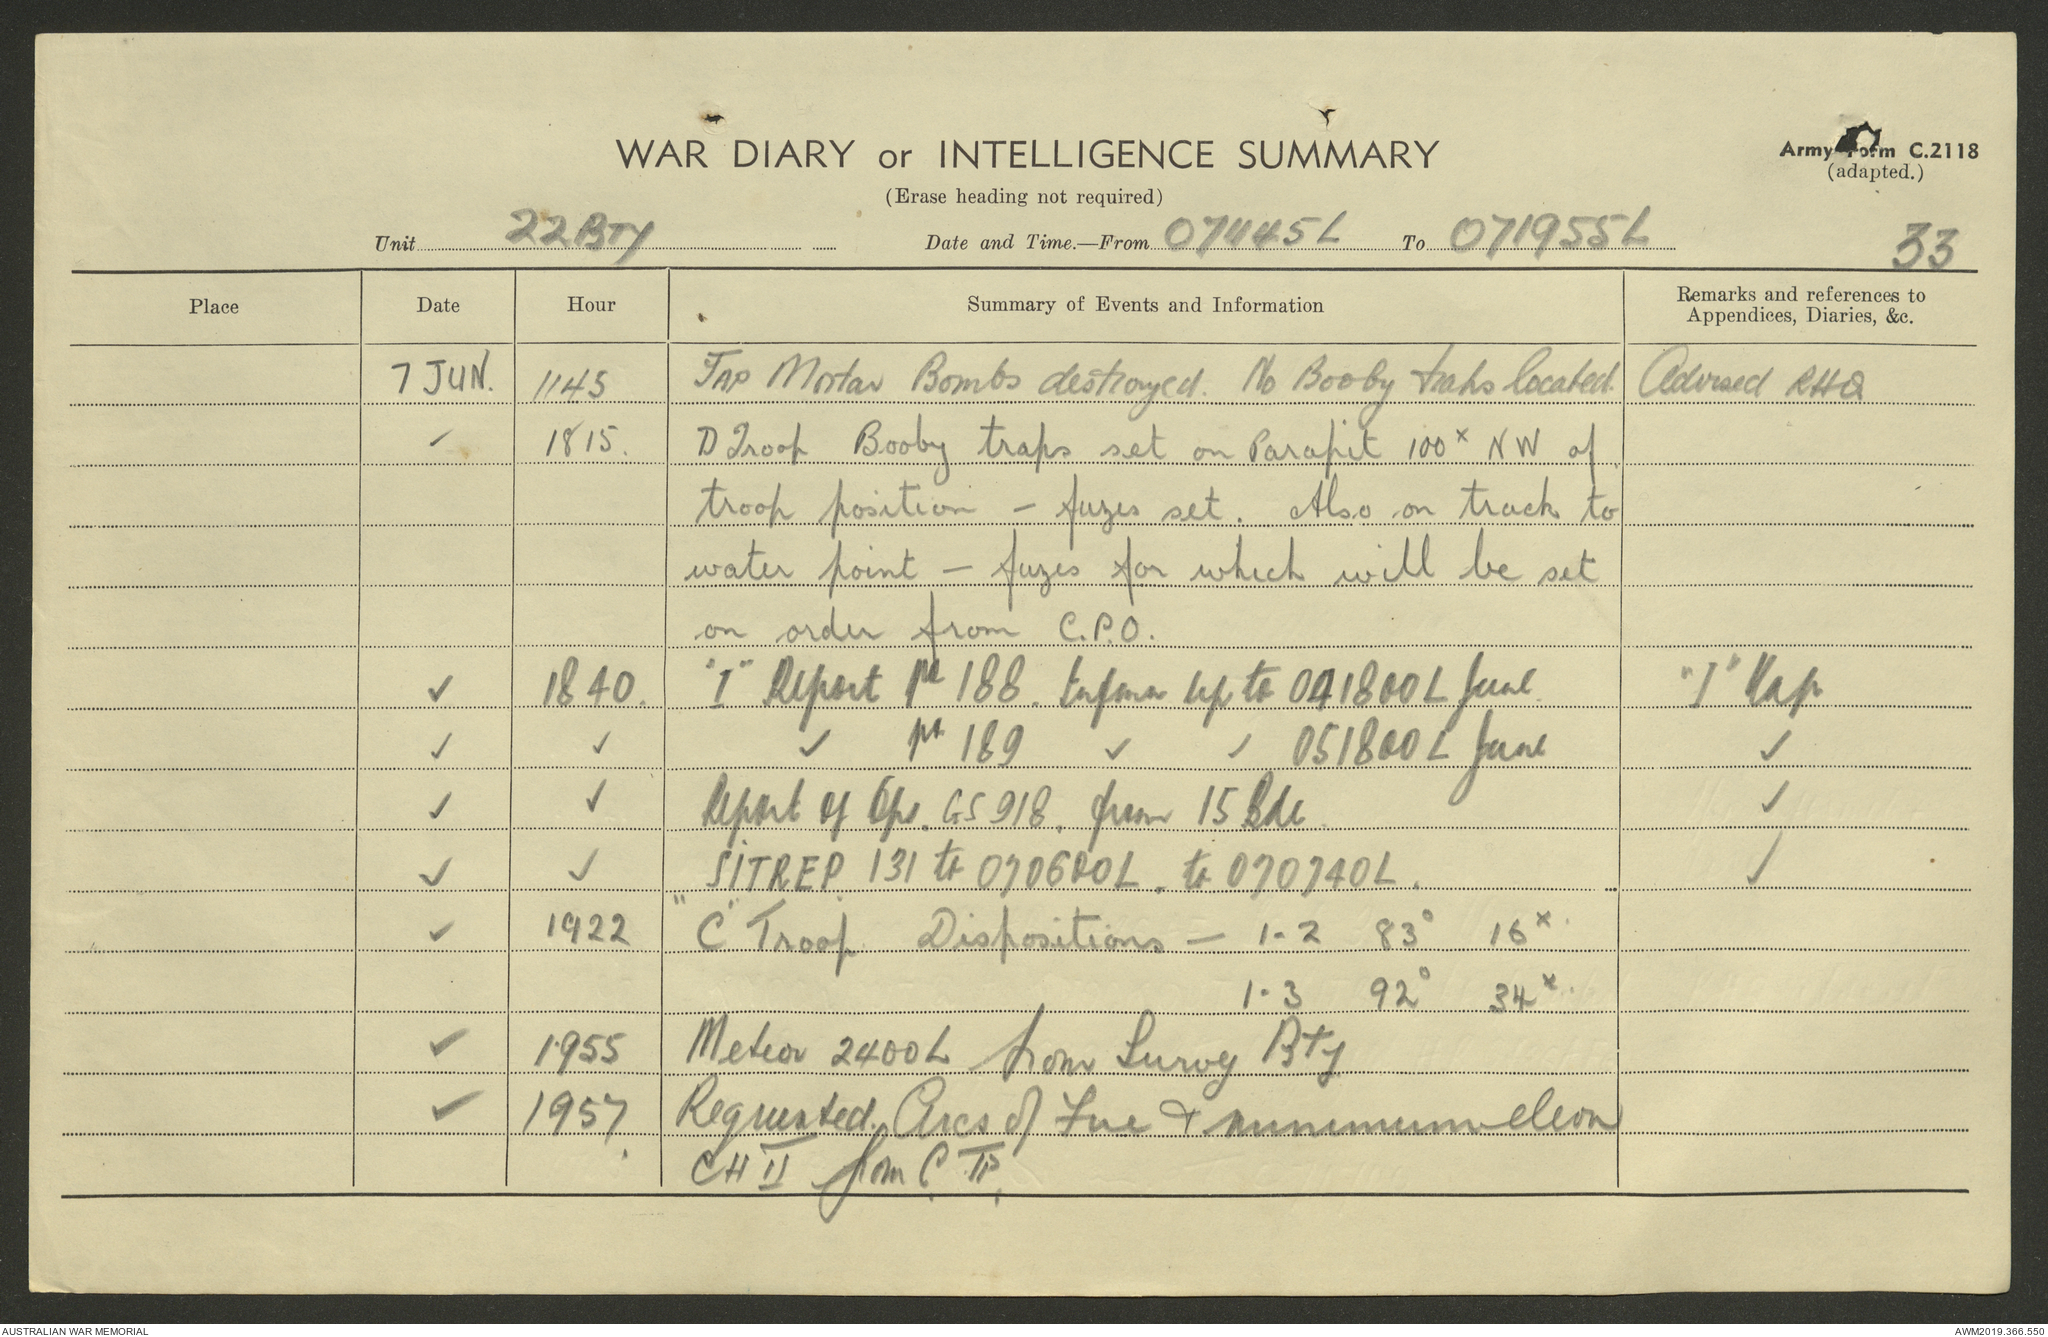 WAR DIARY or INTELLIGENCE SUMMARY
Army Form C.2118
(adapted.)
(Erase heading not required)
Unit 22 BTY Date and Time.—From 071145L To 071955L
33
Place Date Hour Summary of Events and Information Remarks and references to
Appendices, Diaries, &c.
7 JUN. 1145 Jap Mortar Bombs destroyed. No Booby traps located. Advised RHQ
✓ 1815. D Troop Booby traps set on Parapit 100x NW of
troop position – fuzes set. Also on track to
water point – fuzes for which will be set
on order from C.P.O.
✓ 1840. "I" Report pt 188. Informn up to 041800L June "I" Kap
✓ ✓ ✓ pt 189 ✓ ✓ 051800L June ✓
✓ ✓ Report of Ops. GS918. from 15 Bde. ✓
✓ ✓ SITREP 131 to 070600L. to 070740L. ✓
✓ 1922 "C" Troop Dispositions – 1-2 83° 16x.
1-3 92° 34x.
✓ 1955 Meteor 2400L from Survey Bty
✓ 1957. Requested. Arcs of Fire & minimum elevon
CH II from C. TP.
AUSTRALIAN WAR MEMORIAL
AWM2019.366.550